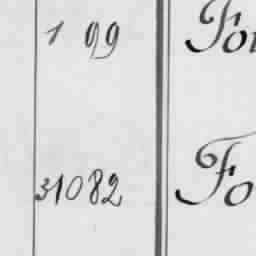 1 99 For
31082 Fo